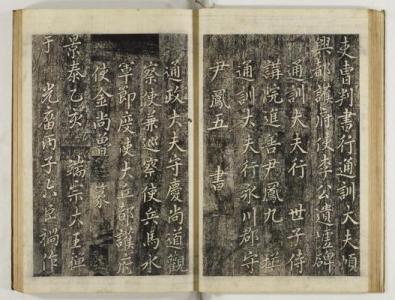 吏曹判書行通訓大夫順
興都護府使李公遺墟碑
通訓大夫行 世子侍
講院進善尹鳳九 撰
通訓大夫行永川郡守
尹鳳五 書
通政大夫守慶尚道觀
察使兼巡察使兵馬水
軍節度使大丘都護府
使金尚魯 篆
景泰乙亥 端宗大王遜
于 光廟丙子六臣禍作